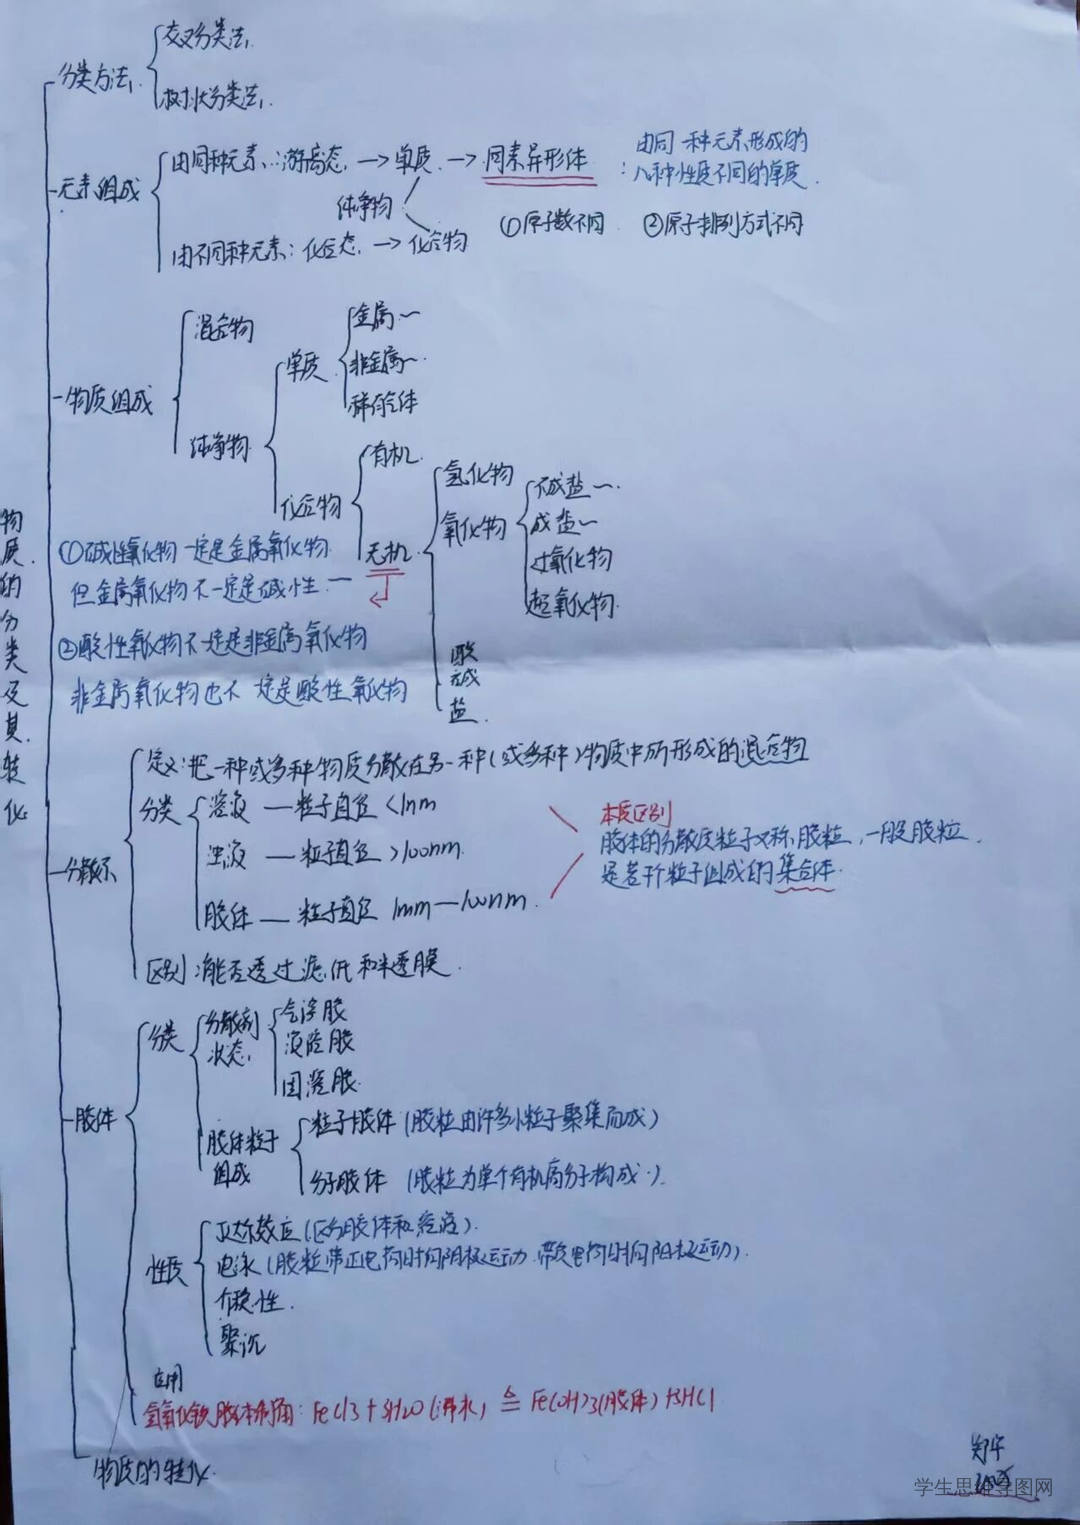 物质的分类及其转化
分类方法
交叉分类法
树状分类法
元素组成
由同种元素:游离态 → 单质 → 同素异形体
由同一种元素形成的
几种性质不同的单质
纯净物
①原子数不同 ②原子排列方式不同
由不同种元素:化合态 → 化合物
物质组成
混合物
纯净物
单质
金属~
非金属~
稀有气体
化合物
有机
无机
氢化物
氧化物
不成盐~
成盐~
过氧化物
超氧化物
酸
碱
盐
①碱性氧化物一定是金属氧化物
但金属氧化物不一定是碱性~
②酸性氧化物不一定是非金属氧化物
非金属氧化物也不一定是酸性氧化物
分散系
定义:把一种或多种物质分散在另一种(或多种)物质中所形成的混合物
分类
溶液 — 粒子直径 <1nm
浊液 — 粒子直径 >100nm
胶体 — 粒子直径 1nm—100nm
本质区别
胶体的分散质粒子又称胶粒,一般胶粒
是若干粒子组成的集合体
区别:能否透过滤纸和半透膜
胶体
分类
分散剂
状态
气溶胶
液溶胶
固溶胶
胶体粒子
组成
粒子胶体(胶粒由许多小粒子聚集而成)
分子胶体(胶粒为单个有机高分子构成)
性质
丁达尔效应(区分胶体和溶液)
电泳(胶粒带正电荷时向阴极运动 带负电荷时向阳极运动)
介稳性
聚沉
应用
氢氧化铁胶体制备:FeCl3+3H2O(沸水) ≙ Fe(OH)3(胶体)+3HCl
物质的转化
学生思维导图网